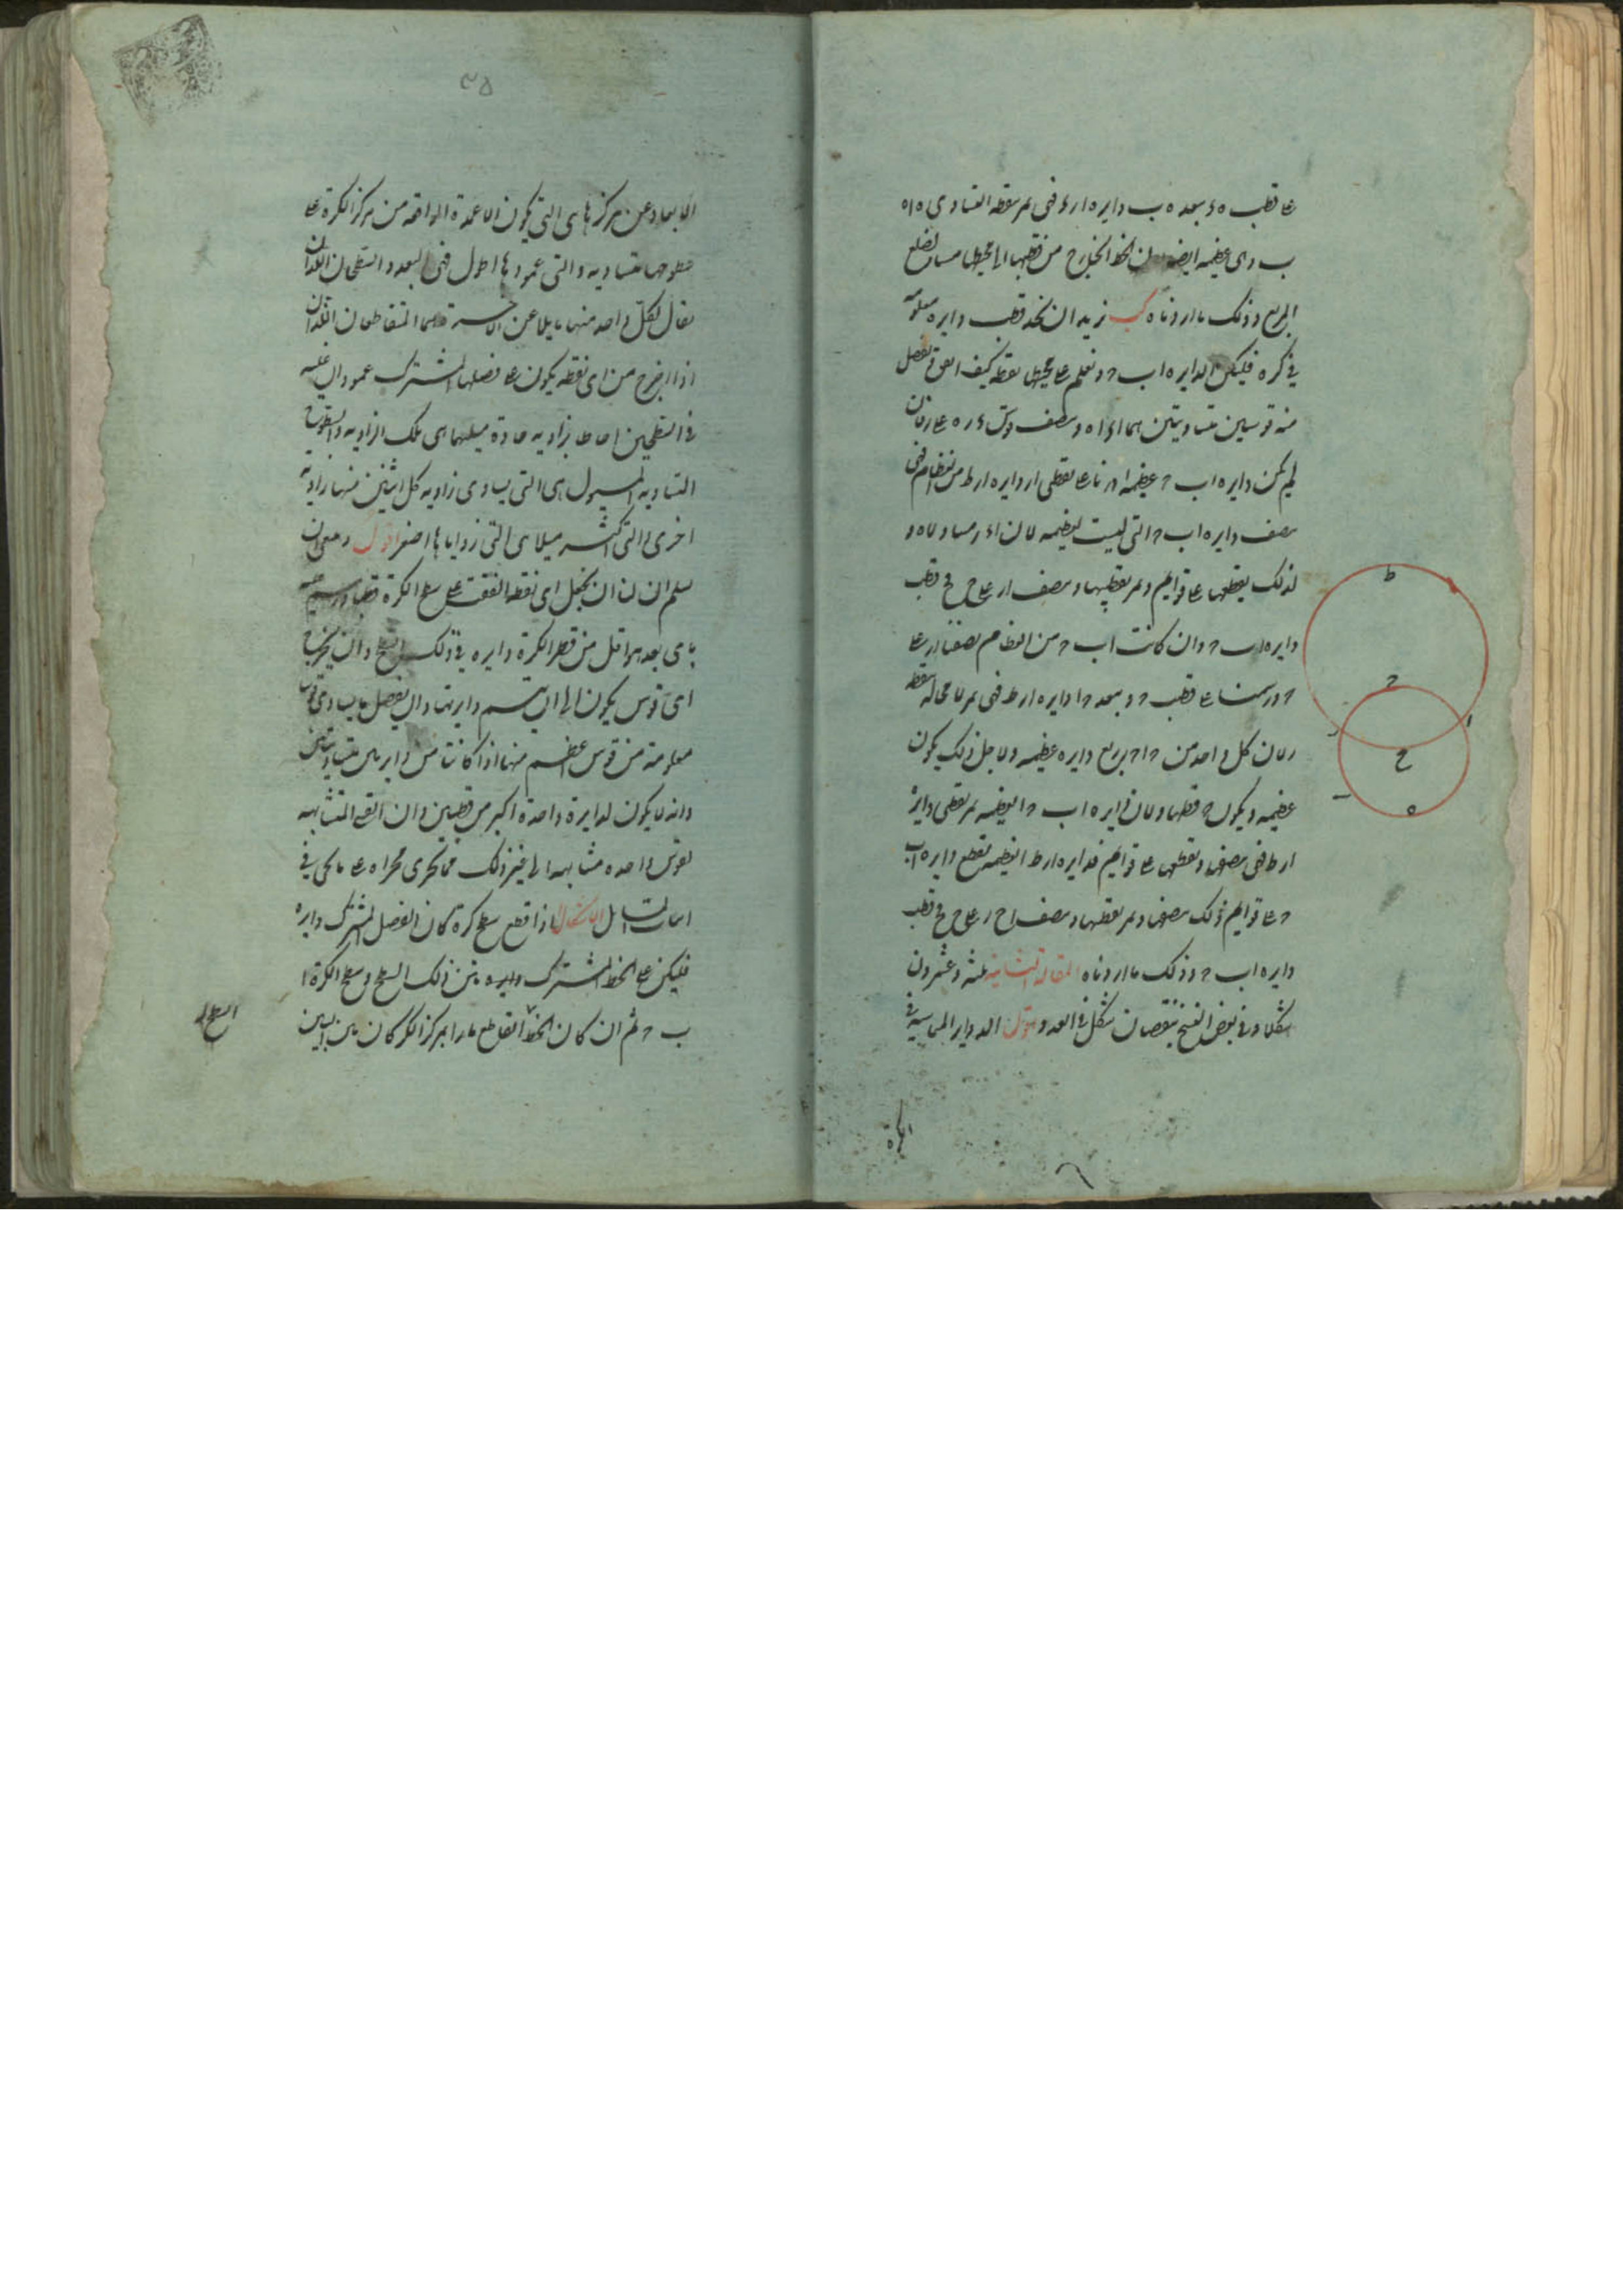 على قطب ه وببعد ه ب دايره ا ر ء فهى تمر بنقطة ا لتساوى ه ا ه
ب وهى عظيمه ايضا لان الخط الخارج من قطبها الى محيطها مساو لضلع
المربع وذلك ما اردناه كب نريد ان نجد قطب دايره معلومه
فى كره فليكن الدايره ا ب ح ونعلم على محيطها نقطه كيف اتفق ونفصل
منه قوسين متساويتين هما ا ء ا ه وننصف قوس ء ر ه على ر فان
لم يكن دايره ا ب ح عظيمه ا درنا على نقطتى ا ر دايره ا ر ط من العظام فهى
تنصف دايره ا ب ح التى ليست بعظيمه لان ا ء ر مساو لا ه ر
لذلك يقطعها على قوايم وتمر بقطبيها وننصف ا ر على ح فح قطب
دايره ا ب ح وان كانت ا ب ح من العظام نصفنا ا ر على
ح ورسمنا على قطب ح وببعد ح ا دايره ا ر ط فهى تمر لا محاله بنقطه
ر لان كل واحد من ح ا ح ر ربع دايره عظيمه ولاجل ذلك يكون
عظيمه ويكون ح قطبها ولان دايره ا ب ح العظيمه تمر بقطبى دايرة
ا ر ط فهى تنصفها وتقطعها على قوايم فدايره ا ر ط العظيمه تقطع دايره ا ب
ح على قوايم فلذلك تنصفها وتمر بقطبيها وننصف ا ح ر على ح فح قطب
دايره ا ب ح وذلك ما اردناه المقالة الثانية ثلثه وعشرون
شكلا وفى بعض النسخ بنقصان شكل فى العدد اقول الدواير المتماسه فى
الكره
٣٥
الابعاد عن مركزها هى التى يكون الاعمدة الواقعه من مركز الكرة على
سطوحها متساويه والتى عمودها اطول فهى ابعد والسطحان اللذان
يقال لكل واحد منهما مايلا عن الاخر هما المتقاطعان اللذان
اذا اخرج من اى نقطه يكون على فصلهما المشترك عمودان عليه
فى السطحين احاطا بزاويه حادة ميلهما هى تلك الزاويه والسطوح
المتساويه الميول هى التى يساوى زاويه كل اثنين منها زاويه
اخرى والتى اكثر ميلا هى التى زواياها اصغر اقول وهو ان
نسلم ان لنا ان نجعل اى نقطه اتفقت على سطح الكرة قطبا ونرسم عليه
باى بعد هو اقل من قطر الكرة دايره فى ذلك السطح وان نخرج
اى قوس يكون الى ان يتم دايرتها وان نفصل ما يساوى قوسا
معلومة من قوس اعظم منها اذا كانتا من دايرتين متساويتين
وانه لا يكون لدايرة واحدة اكثر من قطبين وان القسى المتشابهه
لقوس واحده متشابهه الى غير ذلك مما يجرى مجراه على ما يجى فى
اثبات المسايل الاشكال ا اذا قطع سطح كرة كان الفصل المشترك دايره
فليكن على الخط المشترك بين ذلك السطح وسطح الكرة ا
ب ح ثم ان كان السطح القاطع مارا بمركز الكره كان من البين
السطح
ط
ح
ا
ر
ح
ب
ه